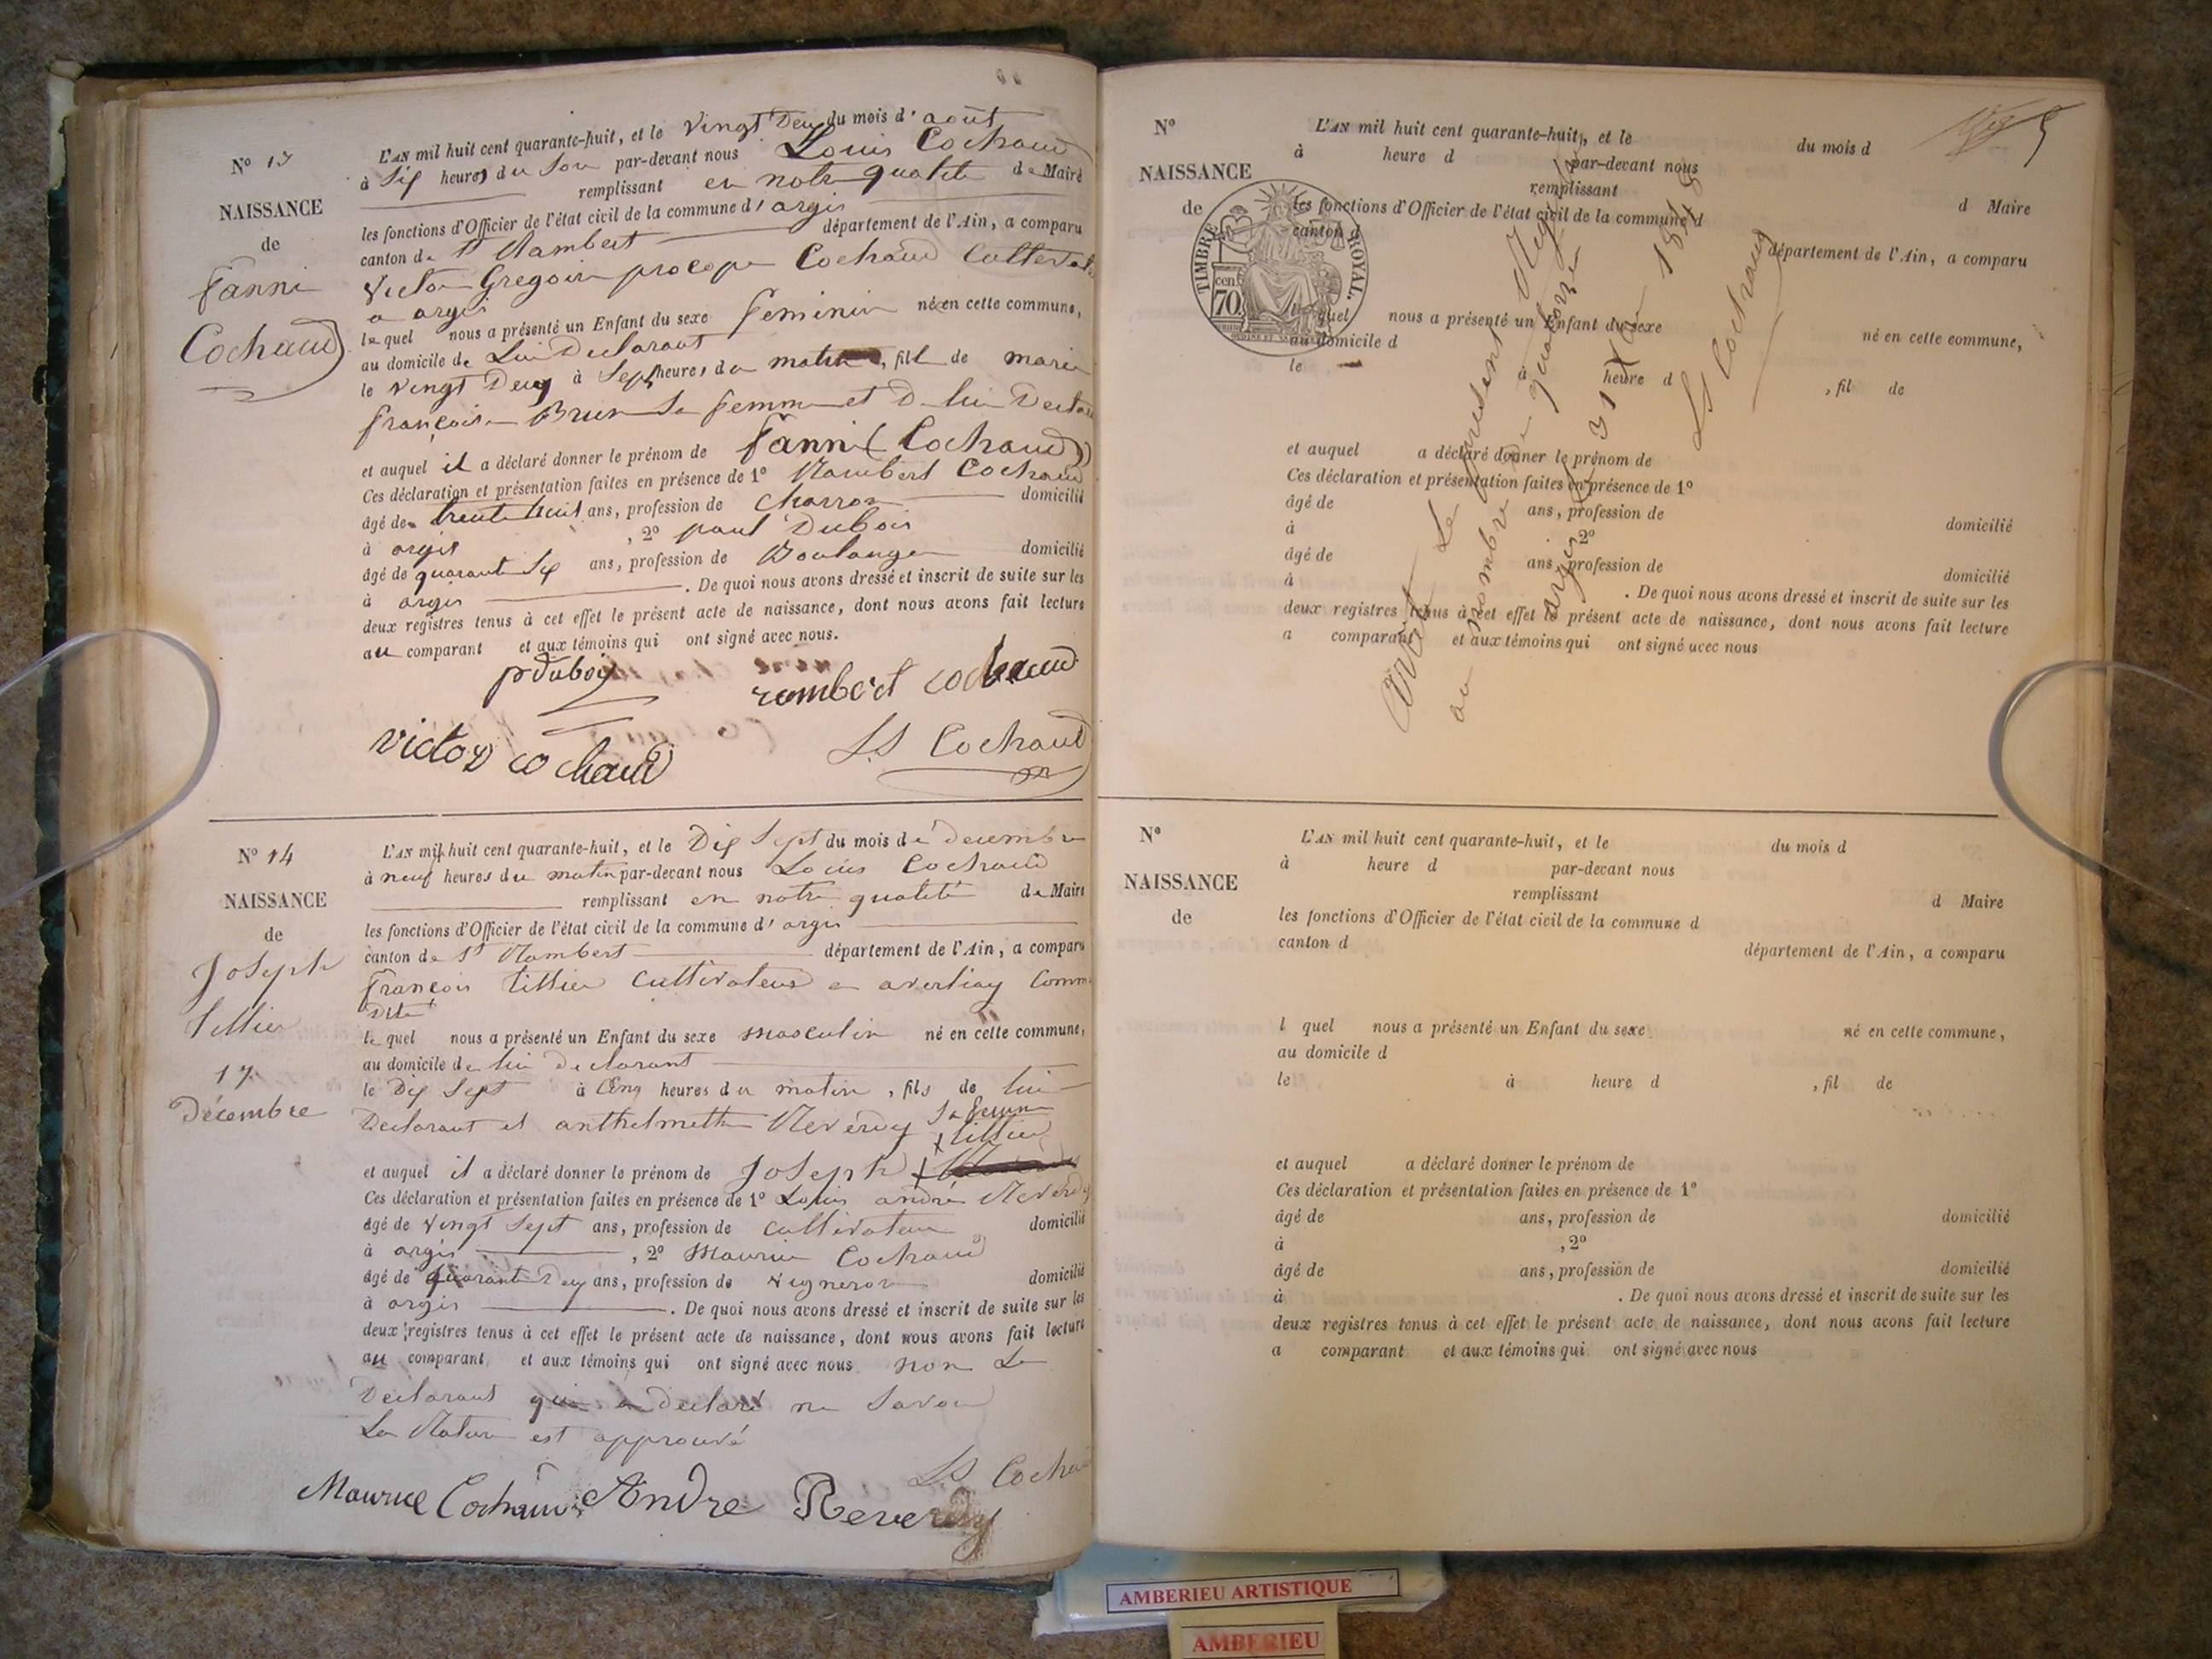 N° 13
NAISSANCE
de
Fanni
Cochaud
L'AN mil huit cent quarante-huit, et le vingt Deux du mois d'août
à Six heures du Soir par-devant nous Louis Cochaud
remplissant en notre qualité de Maire
les fonctions d'Officier de l'état civil de la commune d'argis
canton de St Rambert département de l'Ain, a comparu
Victor Gregoire procope Cochaud Cultivateur
a argis
lequel nous a présenté un Enfant du sexe feminin né en cette commune,
au domicile de Lui Declarant
le vingt Deux à Sept heures du matin, fille de marie
françoise Brun Sa femme et De lui Declarant
et auquel il a déclaré donner le prénom de Fanni (Cochaud)
Ces déclaration et présentation faites en présence de 1° Rambert Cochaud
âgé de trente huit ans, profession de Charron domicilié
à argis, 2° paul Dubois
âgé de quarante Six ans, profession de Boulanger domicilié
à argis. De quoi nous avons dressé et inscrit de suite sur les
deux registres tenus à cet effet le présent acte de naissance, dont nous avons fait lecture
au comparant et aux témoins qui ont signé avec nous.
pdubois
rambert cochaud
victor cochaud
Ls Cochaud
N° 14
NAISSANCE
de
Joseph
tillier
17
Décembre
L'AN mil huit cent quarante-huit, et le Dix Sept du mois de decembre
à neuf heures du matin par-devant nous Louis Cochaud
remplissant en notre qualité de Maire
les fonctions d'Officier de l'état civil de la commune d'argis
canton de St Rambert département de l'Ain, a comparu
françois tillier Cultivateur a averliay Comm
Dite
le quel nous a présenté un Enfant du sexe masculin né en cette commune,
au domicile de lui declarant
le Dix Sept à Cinq heures du matin, fils de lui
Declarant et anthelmette Reverdy Sa femme
tillier
et auquel il a déclaré donner le prénom de Joseph
Ces déclaration et présentation faites en présence de 1° Louis andré Reverdy
âgé de vingt Sept ans, profession de cultivateur domicilié
à argis, 2° Maurice Cochaud
âgé de quarante Deux ans, profession de vigneron domicilié
à argis. De quoi nous avons dressé et inscrit de suite sur les
deux registres tenus à cet effet le présent acte de naissance, dont nous avons fait lecture
au comparant et aux témoins qui ont signé avec nous non Le
Declarant qui a declaré ne Savoir
La Rature est approuvé
Ls Cochaud
Maurice Cochaud André Reverdy
N°
NAISSANCE
de
TIMBRE ROYAL.
cen
70
L'AN mil huit cent quarante-huit, et le du mois d
à heure d par-devant nous
remplissant
d Maire
les fonctions d'Officier de l'état civil de la commune d
canton d
département de l'Ain, a comparu
l quel nous a présenté un Enfant du sexe né en cette commune,
au domicile d
le à heure d, fil de
et auquel a déclaré donner le prénom de
Ces déclaration et présentation faites en présence de 1°
âgé de ans, profession de
à 2° domicilié
âgé de ans, profession de
à domicilié
. De quoi nous avons dressé et inscrit de suite sur les
deux registres tenus à cet effet le présent acte de naissance, dont nous avons fait lecture
a comparant et aux témoins qui ont signé avec nous
Arrêté Le présent Registre
au nombre de quatorze
argis Le 31 Xbre 1848
Ls Cochaud
N°
NAISSANCE
de
L'AN mil huit cent quarante-huit, et le du mois d
à heure d par-devant nous
remplissant
d Maire
les fonctions d'Officier de l'état civil de la commune d
canton d
département de l'Ain, a comparu
l quel nous a présenté un Enfant du sexe né en cette commune,
au domicile d
le à heure d, fil de
et auquel a déclaré donner le prénom de
Ces déclaration et présentation faites en présence de 1°
âgé de ans, profession de domicilié
à, 2°
âgé de ans, profession de domicilié
à. De quoi nous avons dressé et inscrit de suite sur les
deux registres tenus à cet effet le présent acte de naissance, dont nous avons fait lecture
a comparant et aux témoins qui ont signé avec nous
AMBERIEU ARTISTIQUE
AMBERIEU